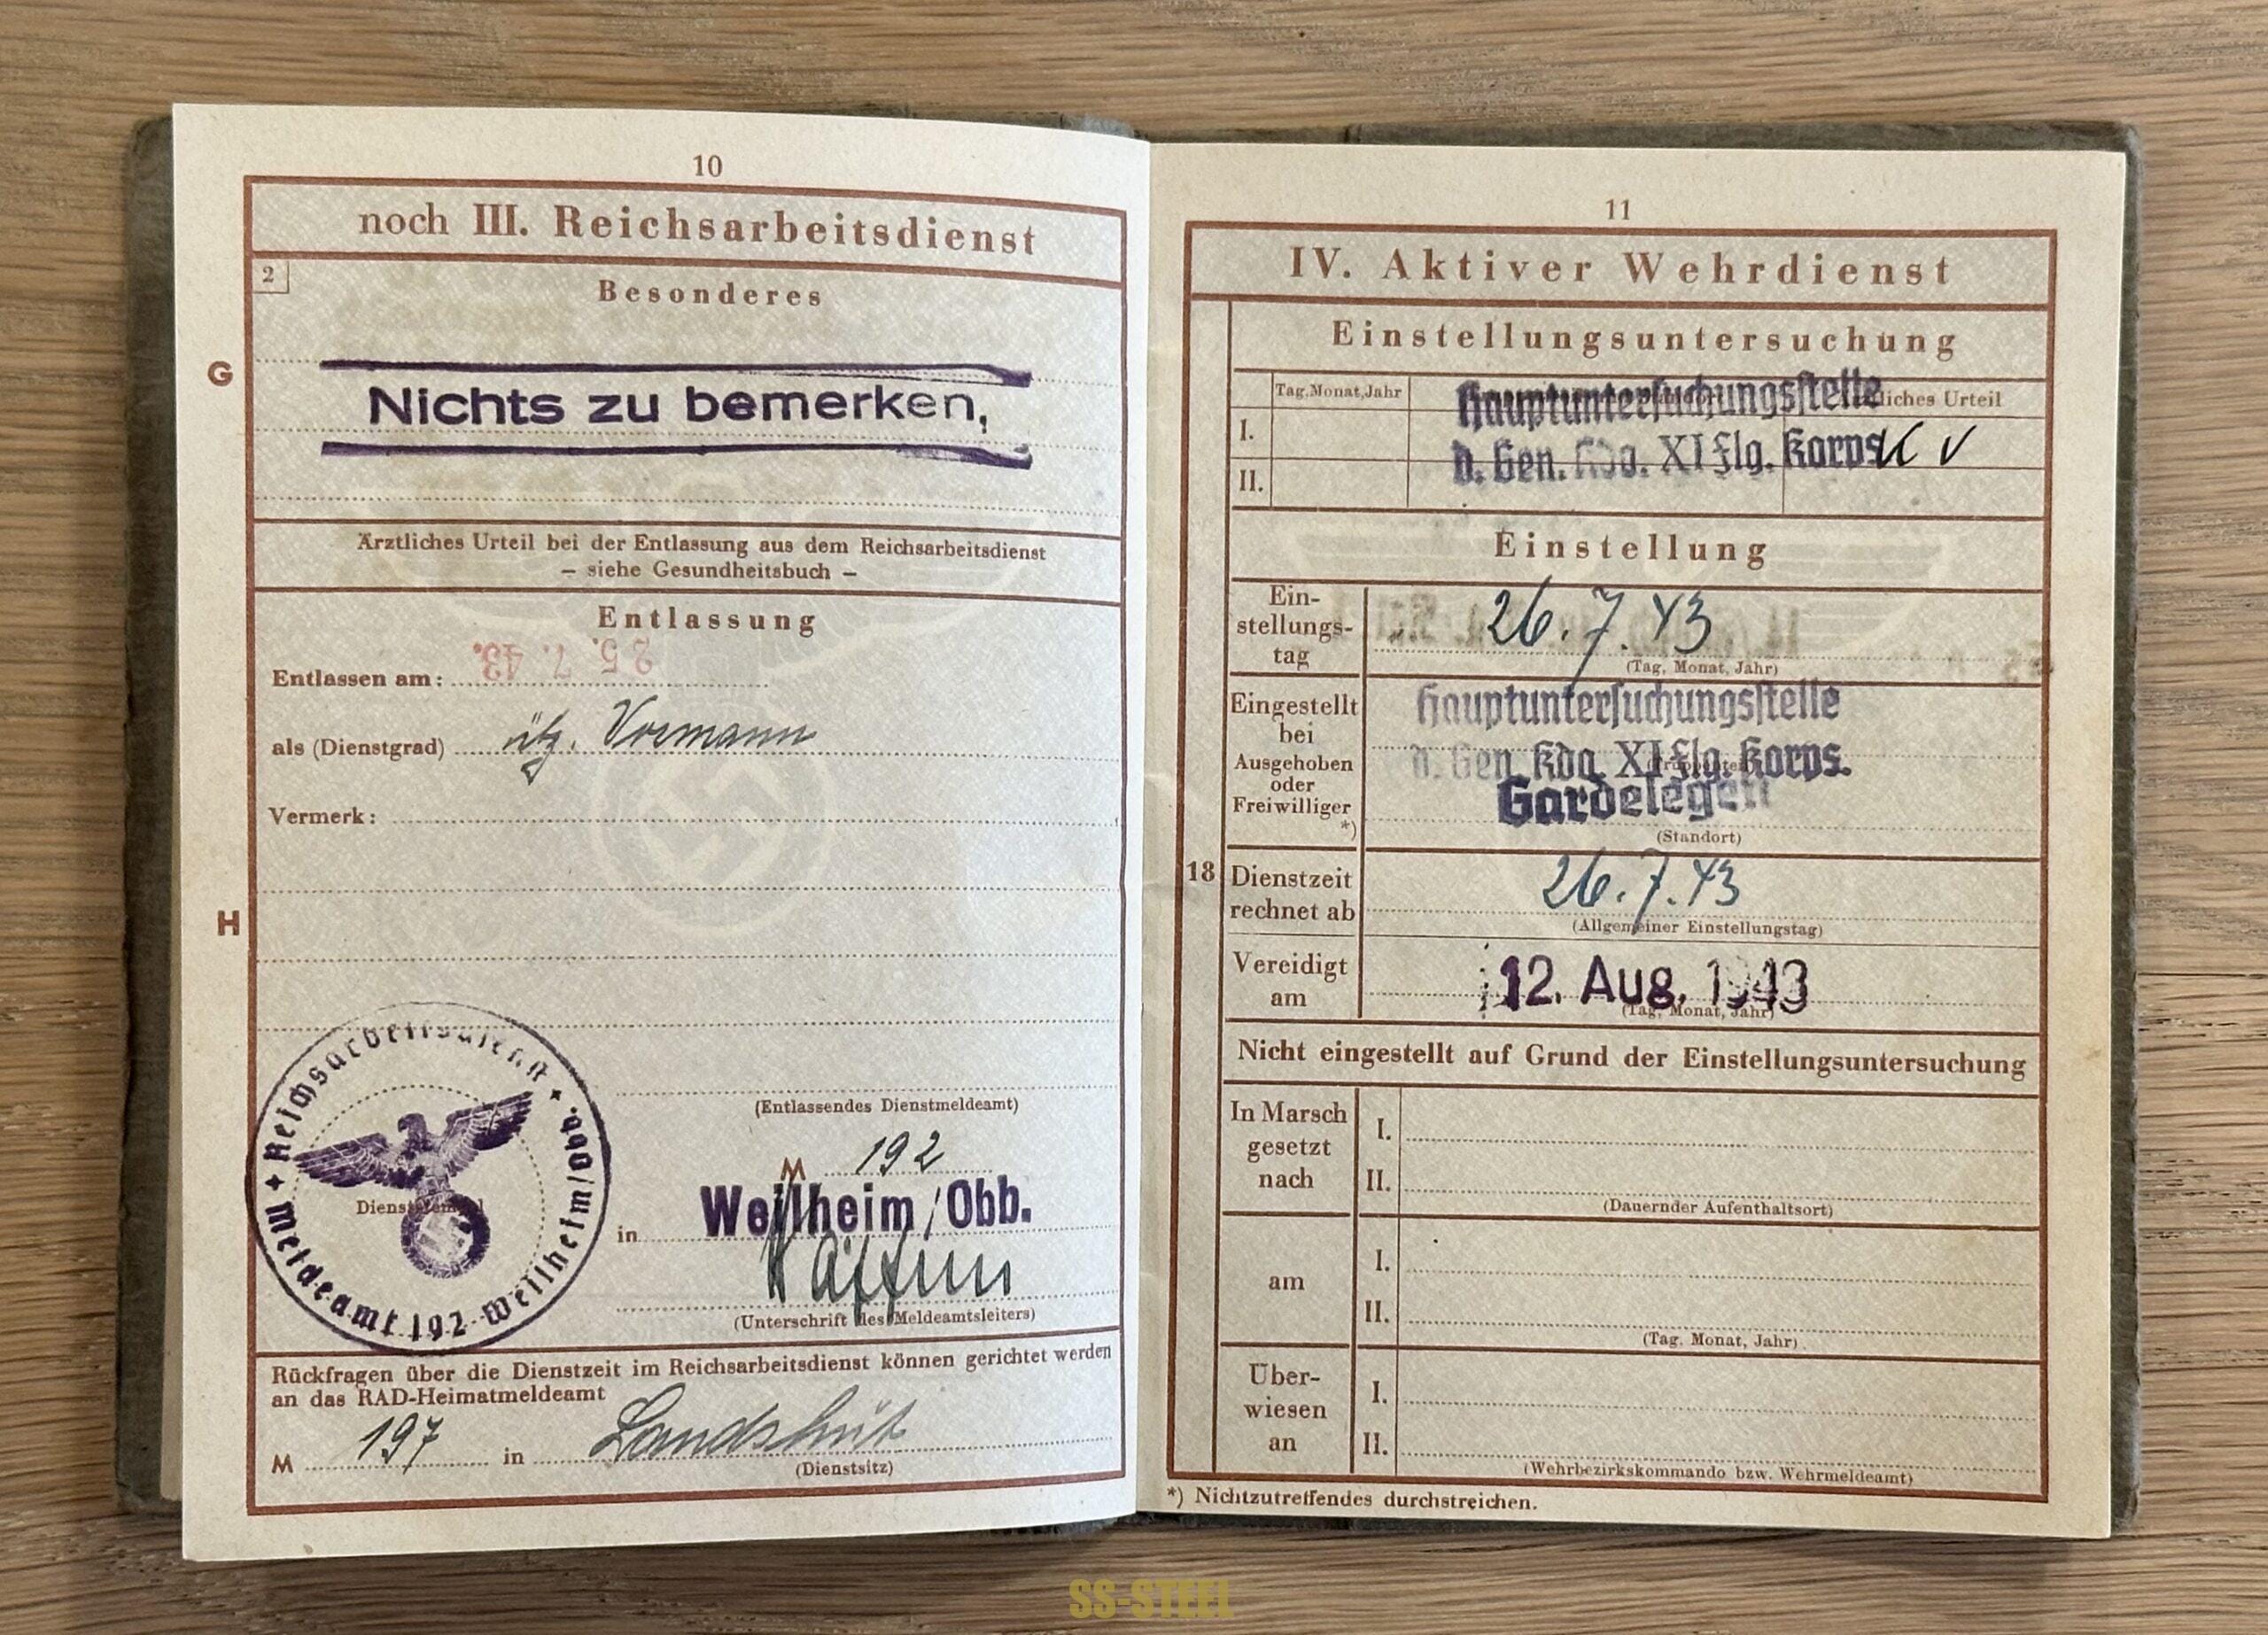 10
noch III. Reichsarbeitsdienst
2
Besonderes
G
Nichts zu bemerken,
Ärztliches Urteil bei der Entlassung aus dem Reichsarbeitsdienst
– siehe Gesundheitsbuch –
Entlassung
Entlassen am: 25. 7. 43.
als (Dienstgrad) ülz. Vormann
Vermerk:
H
Reichsarbeitsdienst
Meldeamt 192 Weilheim/Obb.
Dienststempel
(Entlassendes Dienstmeldeamt)
M 192
in Weilheim/Obb.
(Unterschrift des Meldeamtsleiters)
Rückfragen über die Dienstzeit im Reichsarbeitsdienst können gerichtet werden
an das RAD-Heimatmeldeamt
M 197 in Landshut
(Dienstsitz)
11
IV. Aktiver Wehrdienst
Einstellungsuntersuchung
Tag, Monat, Jahr
liches Urteil
Hauptuntersuchungsstelle
I.
d. Gen. Kdo. XI Flg. Korps
kv
II.
Einstellung
Ein-
stellungs-
tag
26. 7. 43
(Tag, Monat, Jahr)
Eingestellt
bei
Ausgehoben
oder
Freiwilliger
*)
Hauptuntersuchungsstelle
d. Gen. Kdo. XI Flg. Korps.
Gardelegen
(Standort)
18
Dienstzeit
rechnet ab
26. 7. 43
(Allgemeiner Einstellungstag)
Vereidigt
am
12. Aug. 1943
(Tag, Monat, Jahr)
Nicht eingestellt auf Grund der Einstellungsuntersuchung
In Marsch
gesetzt
nach
I.
II.
(Dauernder Aufenthaltsort)
am
I.
II.
(Tag, Monat, Jahr)
Über-
wiesen
an
I.
II.
(Wehrbezirkskommando bzw. Wehrmeldeamt)
*) Nichtzutreffendes durchstreichen.
SS-STEEL